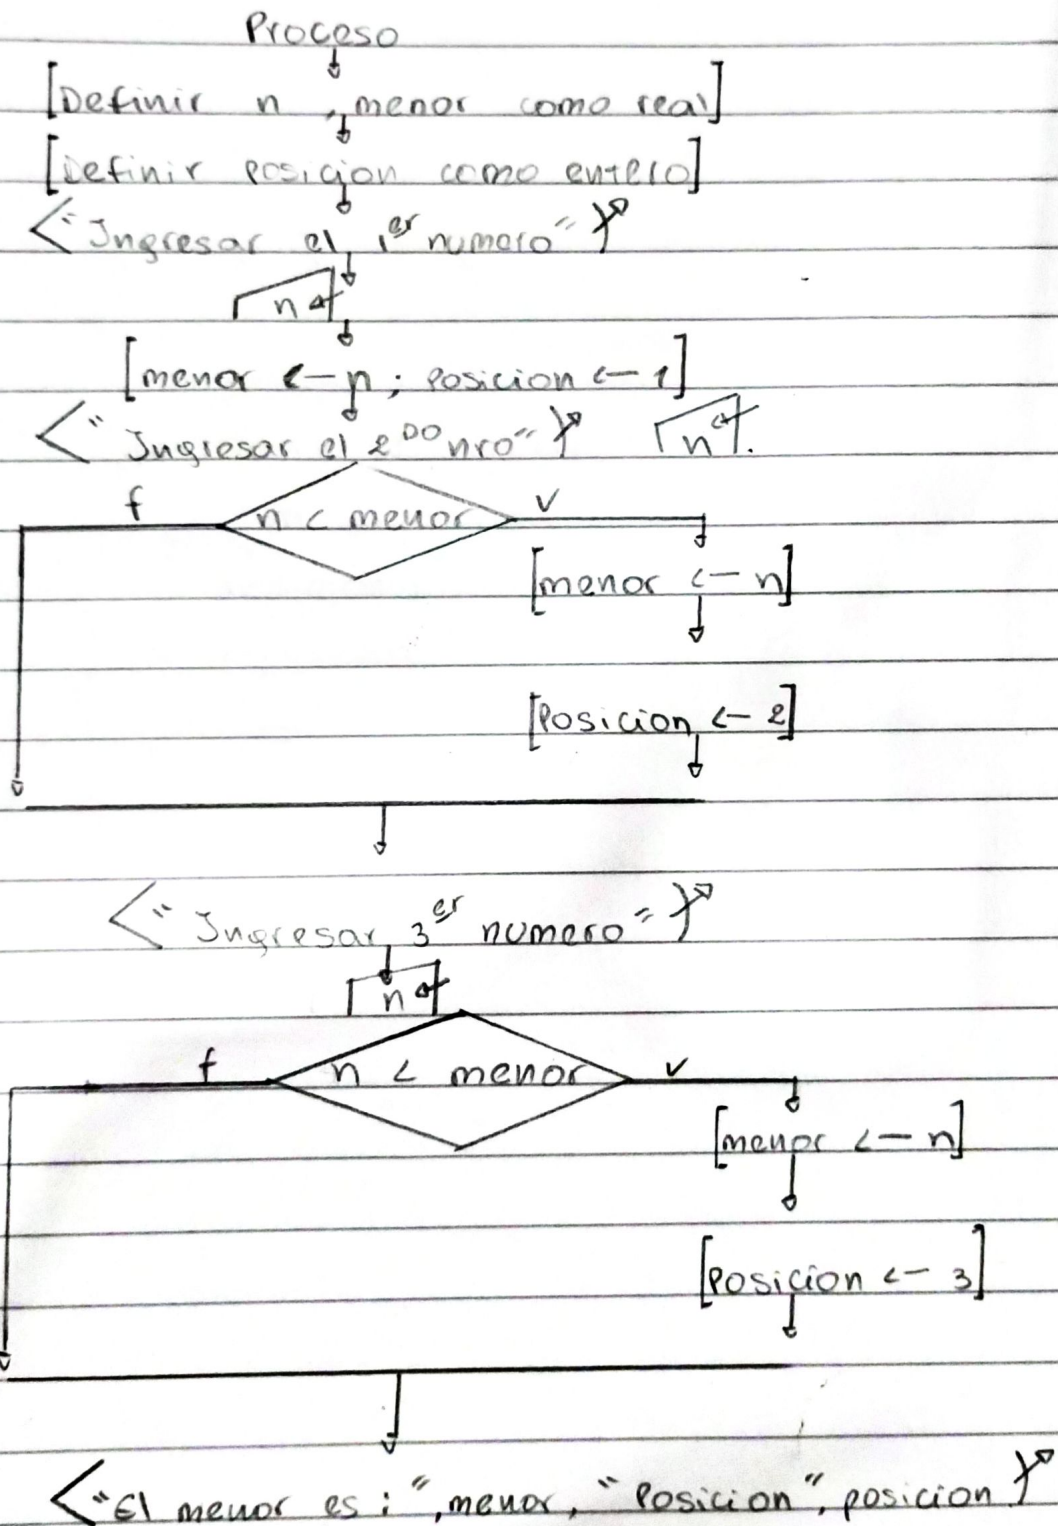 Proceso
[Definir n , menor como real]
[Definir posicion como entero]
<"Ingresar el 1er numero"}
n
[menor <- n ; posicion <- 1]
<"Ingresar el 2DO nro"} n
f n < menor v
[menor <- n]
[Posicion <- 2]
<"Ingresar 3er numero"}
n
f n < menor v
[menor <- n]
[Posicion <- 3]
<"El menor es : ", menor, "Posicion", posicion}